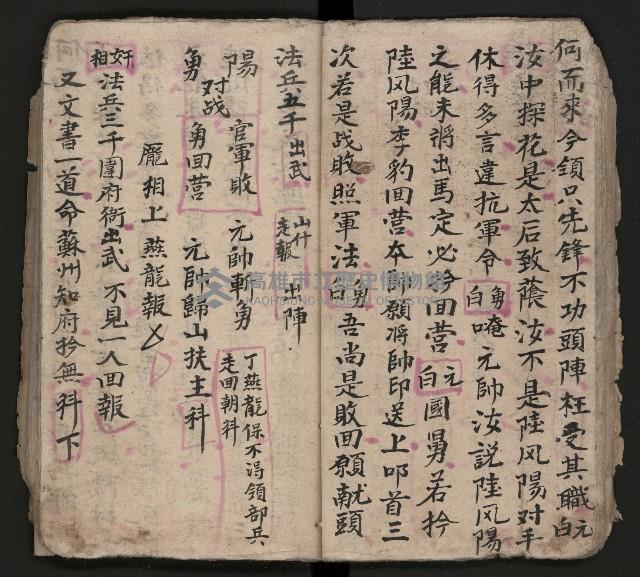 何而來今領只先鋒不功頭陣枉受其職元白
汝中探花是太后致蔭汝不是陸风陽对手
休得多言違抗軍命勇白唵元帥汝説陸风陽
之能未將出馬定必今回营元白國舅若拎
陸风陽李豹回营本帥願将帥印送上叩首三
次若是战敗照軍法勇白吾尚是敗回願献頭
法兵五千出武山什走報出陣
陽对战官軍敗元帥斬勇
勇勇回营元帥歸山扶主科
丁燕龍保不淂領部兵走回朝科
龐相上燕龍報乂
奸相法兵三千圍府衙出武不見一人回報
又文書一道命蘇州知府拎無科下
高雄市立歷史博物館
KAOHSIUNG MUSEUM OF HISTORY